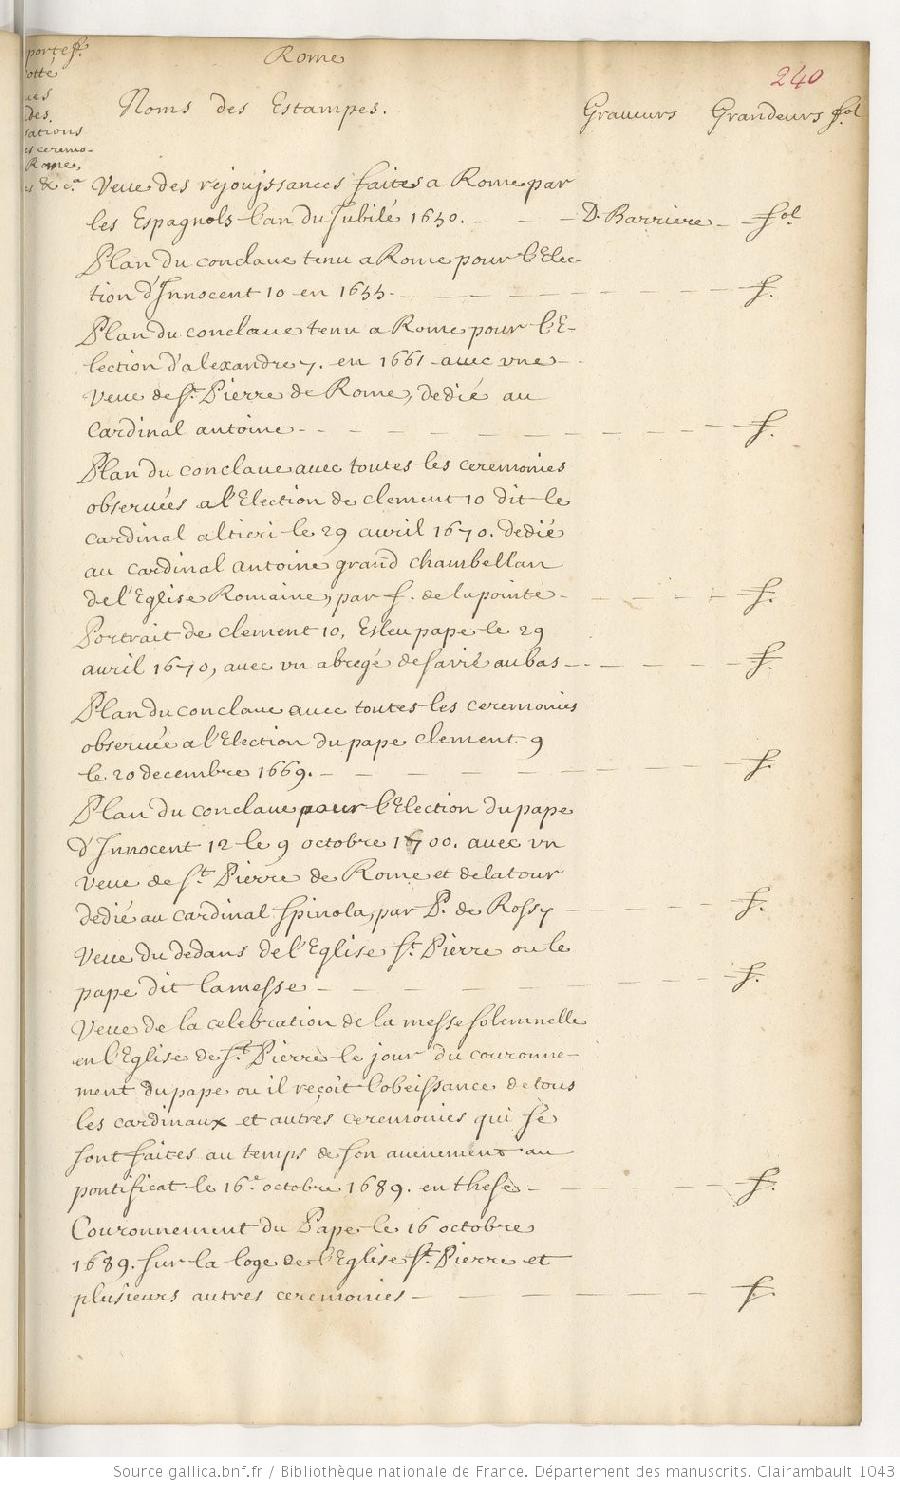 portef.
otté
Rome
240
Noms des Estampes. Graueurs Grandeurs fol
des.
sations
ceremo-
Rome,
& c.a
Veue des rejouissances faites a Rome par
les Espagnols l'an du Jubilé 1650. D. Barriere fol.
Plan du conclaue tenu a Rome pour l'Elec-
tion d'Innocent 10 en 1655. f.
Plan du conclaue tenu a Rome pour l'E-
lection d'alexandre 7. en 1661 auec vne
Veue de St. Pierre de Rome, dedié au
Cardinal antoine f.
Plan du conclaue auec toutes les ceremonies
obseruées a l'Election de clement 10 dit le
cardinal altieri le 29 auril 1670. dedié
au cardinal antoine grand chambellan
de l'Eglise Romaine, par f. de lapointe f.
Portrait de clement 10, Esleu pape le 29
auril 1670, auec vn abregé de sa vie au bas f.
Plan du conclaue auec toutes les ceremonies
obseruée a l'Election du pape clement 9
le 20 decembre 1669. f.
Plan du conclaue pour l'Election du pape
d'Innocent 12 le 9 octobre 1700. auec vn
veue de St. Pierre de Rome et de la tour
dedié au cardinal Spinola, par P. de Rossy f.
Veue du dedans de l'Eglise St. Pierre ou le
pape dit la messe f.
Veue de la celebration de la messe solemnelle
en l'Eglise de St. Pierre le jour du couronne-
ment du pape ou il reçoit l'obeissance de tous
les cardinaux et autres ceremonies qui se
sont faites au temps de son auenement au
pontificat le 16e octobre 1689. en these f.
Couronnement du Pape le 16 octobre
1689. sur la loge de l'Eglise St. Pierre et
plusieurs autres ceremonies f.
Source gallica.bnf.fr / Bibliothèque nationale de France. Département des manuscrits. Clairambault 1043